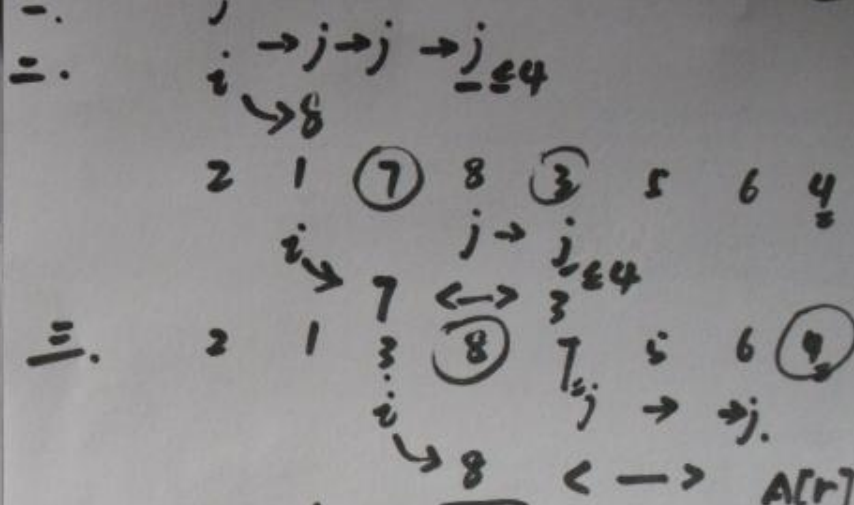 一. j
二. i → j → j → j ≤ 4
↘ 8
2 1 7 8 3 5 6 4
i j → j ≤ 4
↘ 7 <—> 3
三. 2 1 3 8 7 5 6 4
i j → → j.
↘ 8 < — > A[r]